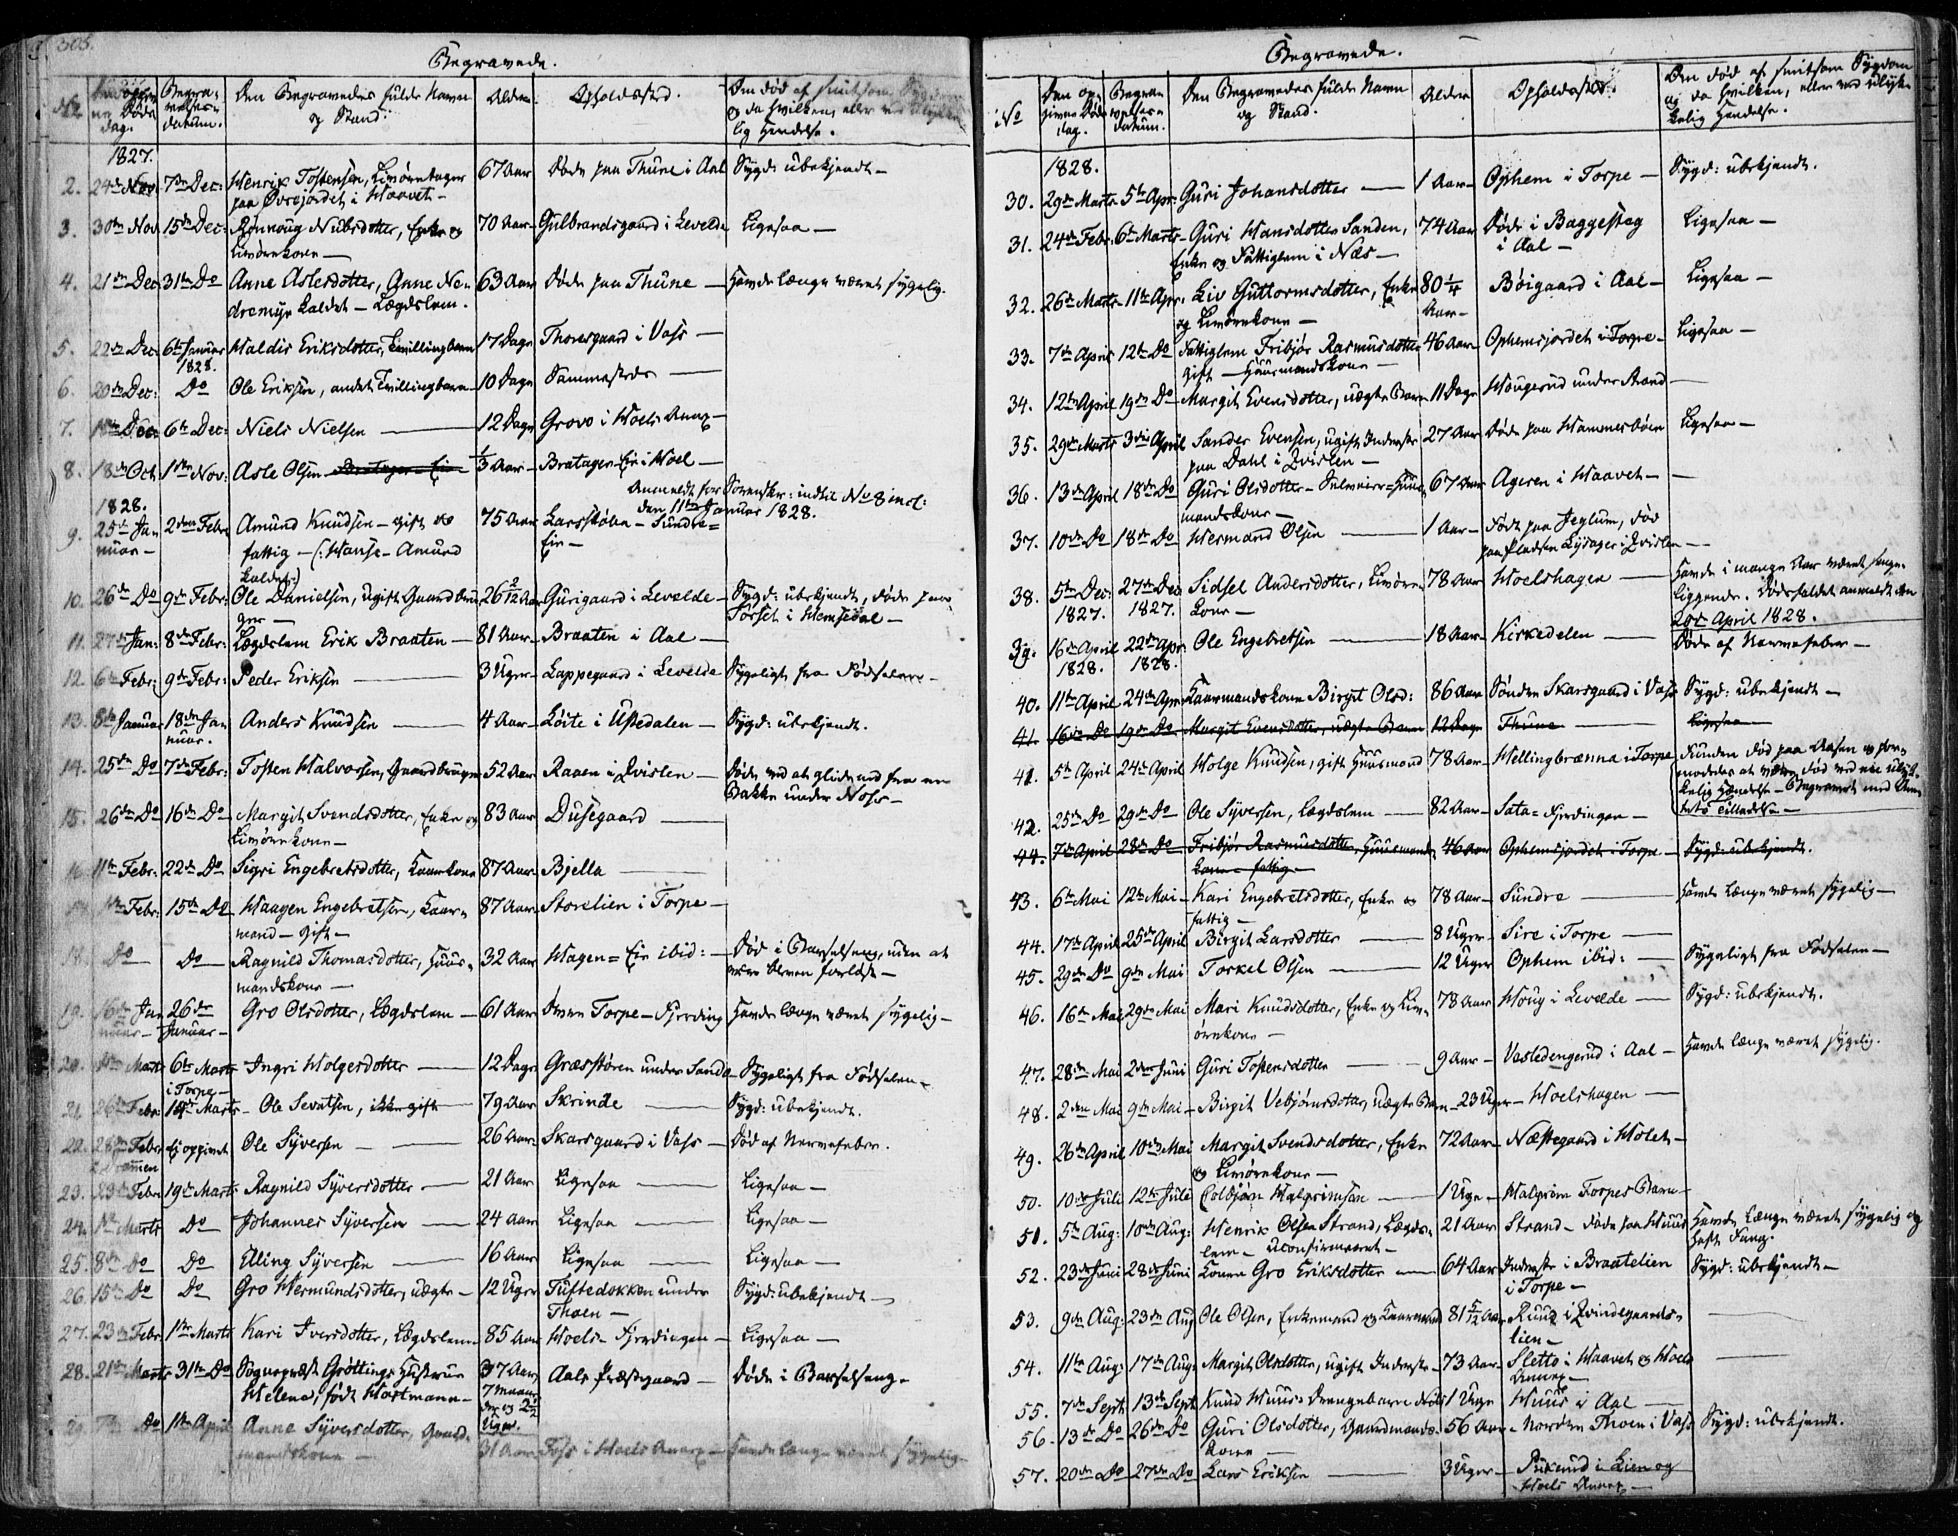 308.
Begravede.
No
Den opgivne Døds dag.
Begravelses-datum.
Den Begravedes fulde Navn og Stand.
Alder.
Opholdssted.
Om død af smitsom Sygdom og da hvilken, eller ved ulykkelig Hændelse.
1827.
2. 24de Nov. 7de Dec: Henrik Tostensen, Livøretager paa Øvrejordet i Haavet — 67 Aar Døde paa Thune i Aal Sygd: ubekjendt —
3. 30te Nov 15de Dec: Rønnoug Nubsdotter, Enke og Livørekone — 70 Aar Gulbrandsgaard i Levelde Ligesaa —
4. 21de Dec. 31te Do Anne Aslesdotter, Anne Nedremyr kaldet — Lægdslem. 63 Aar Døde paa Thune — Havde længe været sygelig.
5. 22de Dec: 6te Januar 1828. Haldis Eriksdotter, Tvillingbarn 17 Dage Thoresgaard i Vats —
6. 20de Dec: Do Ole Eriksen, andet Tvillingbarn 10 Dage Sammesteds —
7. 1ste Dec: 6te Dec: Niels Nielsen — 12 Dage Grovo i Hoels Annex —
8. 18de Oct 1ste Nov: Asle Olsen Bratager-Eie 1/3 Aar — Bratager-Eie i Hoel —
Anmeldt for Sorenskr: indtil No 8 incl: den 11te Januar 1828.
1828.
9. 25de Januar — 2den Febr. Amund Knudsen — gift og fattig — (: Hanse-Amund kaldet:) 75 Aar Larsstølen — Sundre-Eie —
10. 26de Do 9de Febr: Ole Danielsen, ugift Gaardbruger — 26 2/12 Aar Gurigaard i Levelde — Sygd: ubekjendt, døde paa Torset i Hemsedal —
11. 27de Jan: 8de Febr: Lægdslem Erik Braaten — 81 Aar — Braaten i Aal —
12. 6te Febr: 9de Febr: Peder Eriksen — 3 Uger — Lappegaard i Levelde Sygeligt fra Fødselen —
13. 8de Januar 18de Januar. Anders Knudsen — 4 Aar — Løite i Ustedalen — Sygd: ubekjendt.
14. 25de Do 7de Febr: Tosten Halvorsen, Gaardbruger 52 Aar Raaen i Qvislen — Døde ved at glide ned fra en Bakke under Noss —
15. 26de Do 16de Do Margit Svendsdotter, Enke og Livørekone — 83 Aar Dusegaard —
16. 11te Febr: 22de Do Sigri Engebretsdotter, Kaarkone 87 Aar Bjella —
Febr: 15de Do Haagen Engebretsen, Kaarmand — gift — 87 Aar Storelien i Torpe —
18. Do Do Ragnild Thomasdotter, Huusmandskone — 32 Aar Hagen-Eie ibid: — Død i Barselseng, uden at være bleven forløst —
19. 16de Januar — 26de Januar — Gro Olsdotter, Lægdslem — 61 Aar Øvre Torpe-Fjerding Havde længe været sygelig —
20. Marts 6te Marts i Torpe — Ingri Holgersdotter — 12 Dage Græsstøren under Sando Sygeligt fra Fødselen —
21. 26de Febr. 14de Marts Ole Sevatsen, ikke gift 79 Aar Skrinde — Sygd: ubekjendt.
22. 28de Febr. i Dramen Ej opgivet Ole Syversen — 26 Aar Skarsgaard i Vats — Død af Nervefeber.
23. Febr 19de Marts Ragnild Syversdotter — 21 Aar Ligesaa — Ligesaa —
24. 1ste Marts Do Johannes Syversen — 24 Aar Ligesaa — Ligesaa —
25. 8de Do Do Elling Syversen — 16 Aar Ligesaa — Ligesaa —
26. 15de Do Do Gro Hermundsdotter, uægte — 12 Uger Tuftedokken under Thoen — Sygd: ubekjendt —
27. 23de Febr. 1ste Marts Kari Iversdotter, Lægdslem 85 Aar Hoels-Fjerdingen — Ligesaa —
28. 21de Marts 31te Do Sognepræst Grøttings Hustrue Helena, født Hartmann — 37 Aar, 7 Maaneder og 2 1/2 Uger. Aals Præstegaard — Døde i Barselseng.
29. Do 1ste April Anne Syversdotter, Gaardmandskone — 31 Aar Foss i Hoels Annex — Havde længe været sygelig —
Begravede.
No
Den opgivne Døds dag.
Begravelses-datum.
Den Begravedes fulde Navn og Stand.
Alder
Opholdssted.
Om død af smitsom Sygdom og da hvilken, eller ved ulykkelig Hændelse.
1828.
30. 29de Marts 5te Apr. Guri Johansdotter — 1 Aar — Ophem i Torpe — Sygd: ubekjendt.
31. 24de Febr. 6te Marts — Guri Hansdotter Sanden, Enke og Fattiglem i Næs — 74 Aar Døde i Baggestag i Aal — Ligesaa —
32. 26de Marts 11te Apr. Liv Guttormsdotter, Enke og Livørekone — 80 1/4 Aar — Bøigaard i Aal — Ligesaa —
33. 7de April 12te Do Fattiglem Fribjør Rasmusdotter gift — Huusmandskone — 46 Aar Ophemsjordet i Torpe — Ligesaa —
34. 12te April 19de Do Margit Evensdotter, uægte Barn 11 Dage Hougerud under Strand —
35. 29de Marts 3die April Sander Evensen, ugift Inderste paa Dahl i Qvislen — 27 Aar Døde paa Hammersbøen Ligesaa —
36. 13de April 18de Do Guri Olsdotter — Huusmandskone — 67 Aar Ageren i Haavet —
37. 10de Do 18de Do Hermand Olsen — 1 Aar — Født paa Jeglum, død paa Pladsen Lysager i Qvislen —
38. 5te Dec: 1827. 27de Dec: 1827. Sidsel Andersdotter, Livørekone — 78 Aar Hoelshagen — Havde i mange Aar været sengeliggende. Dødsfaldet anmeldt den 20de April 1828.
39. 16de April 1828. 22de Apr. 1828. Ole Engebretsen — 18 Aar Kirkedelen — Døde af Nervefeber —
40. 11te April 24de Apr. Kaarmandskone Birgit Olsd: 86 Aar Søndre Skarsgaard i Vats Sygd: ubekjendt —
41. 16de Do 19de Do Margit Evensdotter, uægte Barn 12 Dage Thune — Ligesaa —
41. 5te April 24de April Holge Knudsen, gift Huusmand 78 Aar Hellingbrænna i Torpe Funden død paa Aasen og formodedes at være død ved en ulykkelig Hændelse — Begravet med Amtets Tilladelse —
42. 25de Do 29de Do Ole Syversen, Lægdslem — 82 Aar — Sata-Fjerdingen —
44. 7de April 28de Do Fribjør Rasmusdotter, Huusmandskone — fattig — 46 Aar Ophemsjordet i Torpe — Sygd: ubekjendt.
43. 6te Mai 12te Mai — Kari Engebretsdotter, Enke og fattig — 78 Aar — Sundre — Havde længe været sygelig —
44. 17de April 25de April Birgit Larsdotter — 8 Uger — Sire i Torpe —
45. 29de Do 9de Mai Torkel Olsen — 12 Uger Ophem ibid: — Sygeligt fra Fødselen —
46. 16de Mai 29de Mai Mari Knudsdotter, Enke og Livørekone — 78 Aar Houg i Levelde — Sygd: ubekjendt.
47. 28de Mai 2den Juni Guri Tostensdotter — 9 Aar — Vesledengerud i Aal — Havde længe været sygelig.
48. 2den Mai 9de Mai — Birgit Vebjørnsdotter, uægte Barn — 23 Uger — Hoelshagen —
49. 26de April 10de Mai Margit Svendsdotter, Enke og Livørekone — 72 Aar — Næstegaard i Holet —
50. 10de Juli 12te Juli Colbjørn Halgrimsen — 1 Uge — Halgrim Torpes Barn —
51. 5te Aug: 10de Aug: Henrik Olsen Strand, Lægdslem — uconfirmeret — 21 Aar Strand — døde paa Huus Havde længe været sygelig og holdt Seng.
52. 23de Juni 28de Juni Konen Gro Eriksdotter — 64 Aar Inderste i Braatelien i Torpe — Sygd: ubekjendt —
53. 9de Aug: 23de Aug Ole Olsen, Enkemand og Kaarmand 81 5/12 Aar Ruud i Qvindegaardslien —
54. 11te Aug: 17de Aug: Margit Olsdotter, ugift Inderste — 73 Aar — Sletto i Haavet og Hoels Annex —
55. 7de Sept 13de Sept. Knud Huus's Drengebarn Nils 1 Uge Huus i Aal —
56. 13de Do 26de Do Guri Olsdotter, Gaardmandskone — 56 Aar — Nordre Thoen i Vats Sygd: ubekjendt.
57. 20de Do 27de Do Lars Eriksen — 3 Uger — i Lien og Hoels Annex —